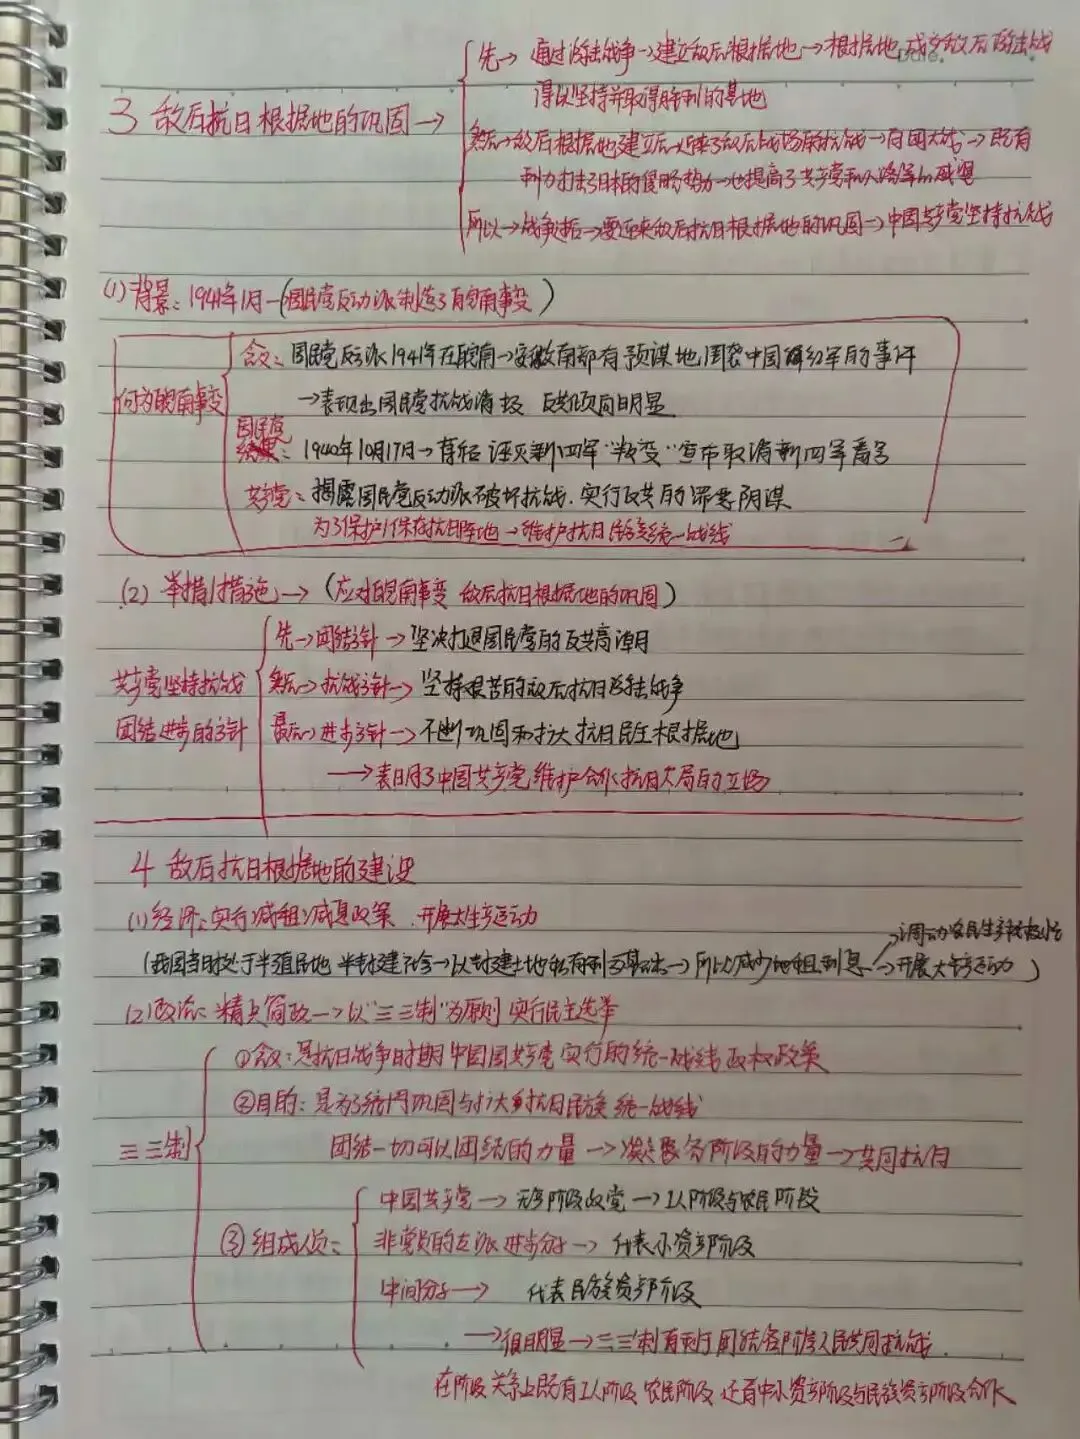 先→ 通过游击战争→建立敌后根据地→根据地成为敌后游击战
得以坚持并取得胜利的基地
3 敌后抗日根据地的巩固→
然后→敌后根据地建立后→迎来了敌后战场的抗战→百团大战→既有
利力打击了日本的侵略势力→也提高了共产党和八路军的威望
所以→战争过后→要迎来敌后抗日根据地的巩固→中国共产党坚持抗战
(1)背景: 1941年1月-(国民党反动派制造了皖南事变)
含义: 国民党反派1941年在皖南→安徽南部有预谋地围袭中国新四军的事件
何为皖南事变
→表现出国民党抗战消极 反共倾向明显
国民党
结果: 1940年10月17日→蒋石诬灭新四军"叛变"宣布取消新四军番号
共产党: 揭露国民党反动派破坏抗战、实行反共的罪恶阴谋
为了保护/保存抗日阵地→维护抗日民族统一战线
(2) 举措/措施→ (应对皖南事变 敌后抗日根据地的巩固)
先→团结方针→坚决打退国民党的反共高潮
共产党坚持抗战
然后→抗战方针→坚持艰苦的敌后抗日游击战争
团结进步的方针
最后→进步方针→不断巩固和扩大抗日民主根据地
→表明了中国共产党维护合作抗日大局的立场
4 敌后抗日根据地的建设
(1)经济: 实行减租减息政策、开展大生产运动
→调动农民生产积极性
(我国当时处于半殖民地 半封建社会→以封建土地私有制为基础→所以减少地租利息→开展大生产运动)
(2)政治: 精兵简政→以"三三制"为原则 实行民主选举
①含义: 是抗日战争时期中国国共产党实行的统一战线政权政策
②目的: 是为了统门巩固与扩大抗日民族统一战线
三三制
团结一切可以团结的力量→凝聚各阶级的力量→共同抗日
中国共产党→无产阶级政党→工人阶级与农民阶级
③组成人员:
非党员的左派进步分子→ 代表小资产阶级
中间分子→ 代表民族资产阶级
→很明显→三三制有利于团结各阶层人民共同抗战
在阶级关系上既有工人阶级 农民阶级 还有中小资产阶级与民族资产阶级合作